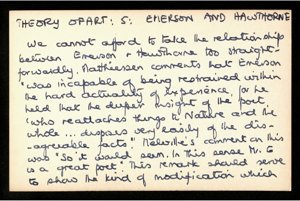 THEORY OF ART: S: EMERSON AND HAWTHORNE
We cannot afford to take the relationship
between Emerson & Hawthorne too straight-
forwardly. Matthiessen comments that Emerson
"was incapable of being restrained within
the hard actuality of experience, for he
held that the deeper insight of the poet,
'who reattaches things to Nature and the
whole ... disposes very easily of the dis-
-agreeable facts'." Melville's comment on this
was "So it would seem. In this sense Mr. E
is a great poet". This remark should serve
to show the kind of modification which